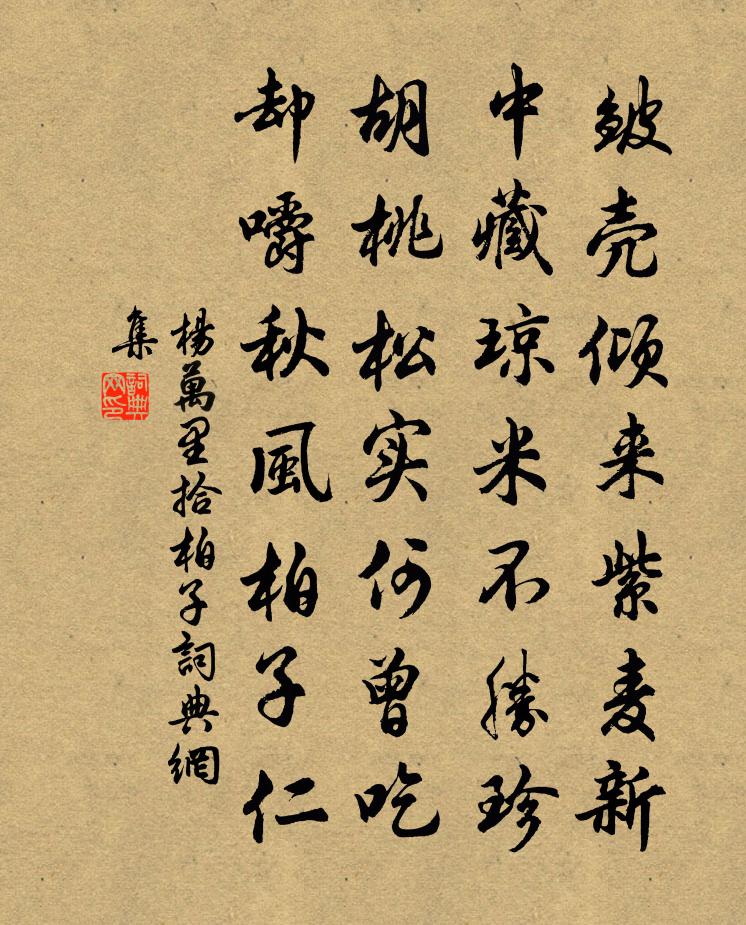 皴壳倾来紫麦新
中藏琼米不勝珍
胡桃松实何曾吃
却嚼秋風柏子仁
楊萬里拾柏子詞典網
集
詞典
网印